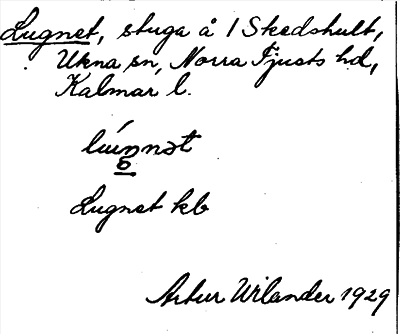 Lugnet, stuga å 1 Skedshult,
Ukna sn, Norra Tjusts hd,
Kalmar l.
Lugnet kb
Artur Wilander 1929